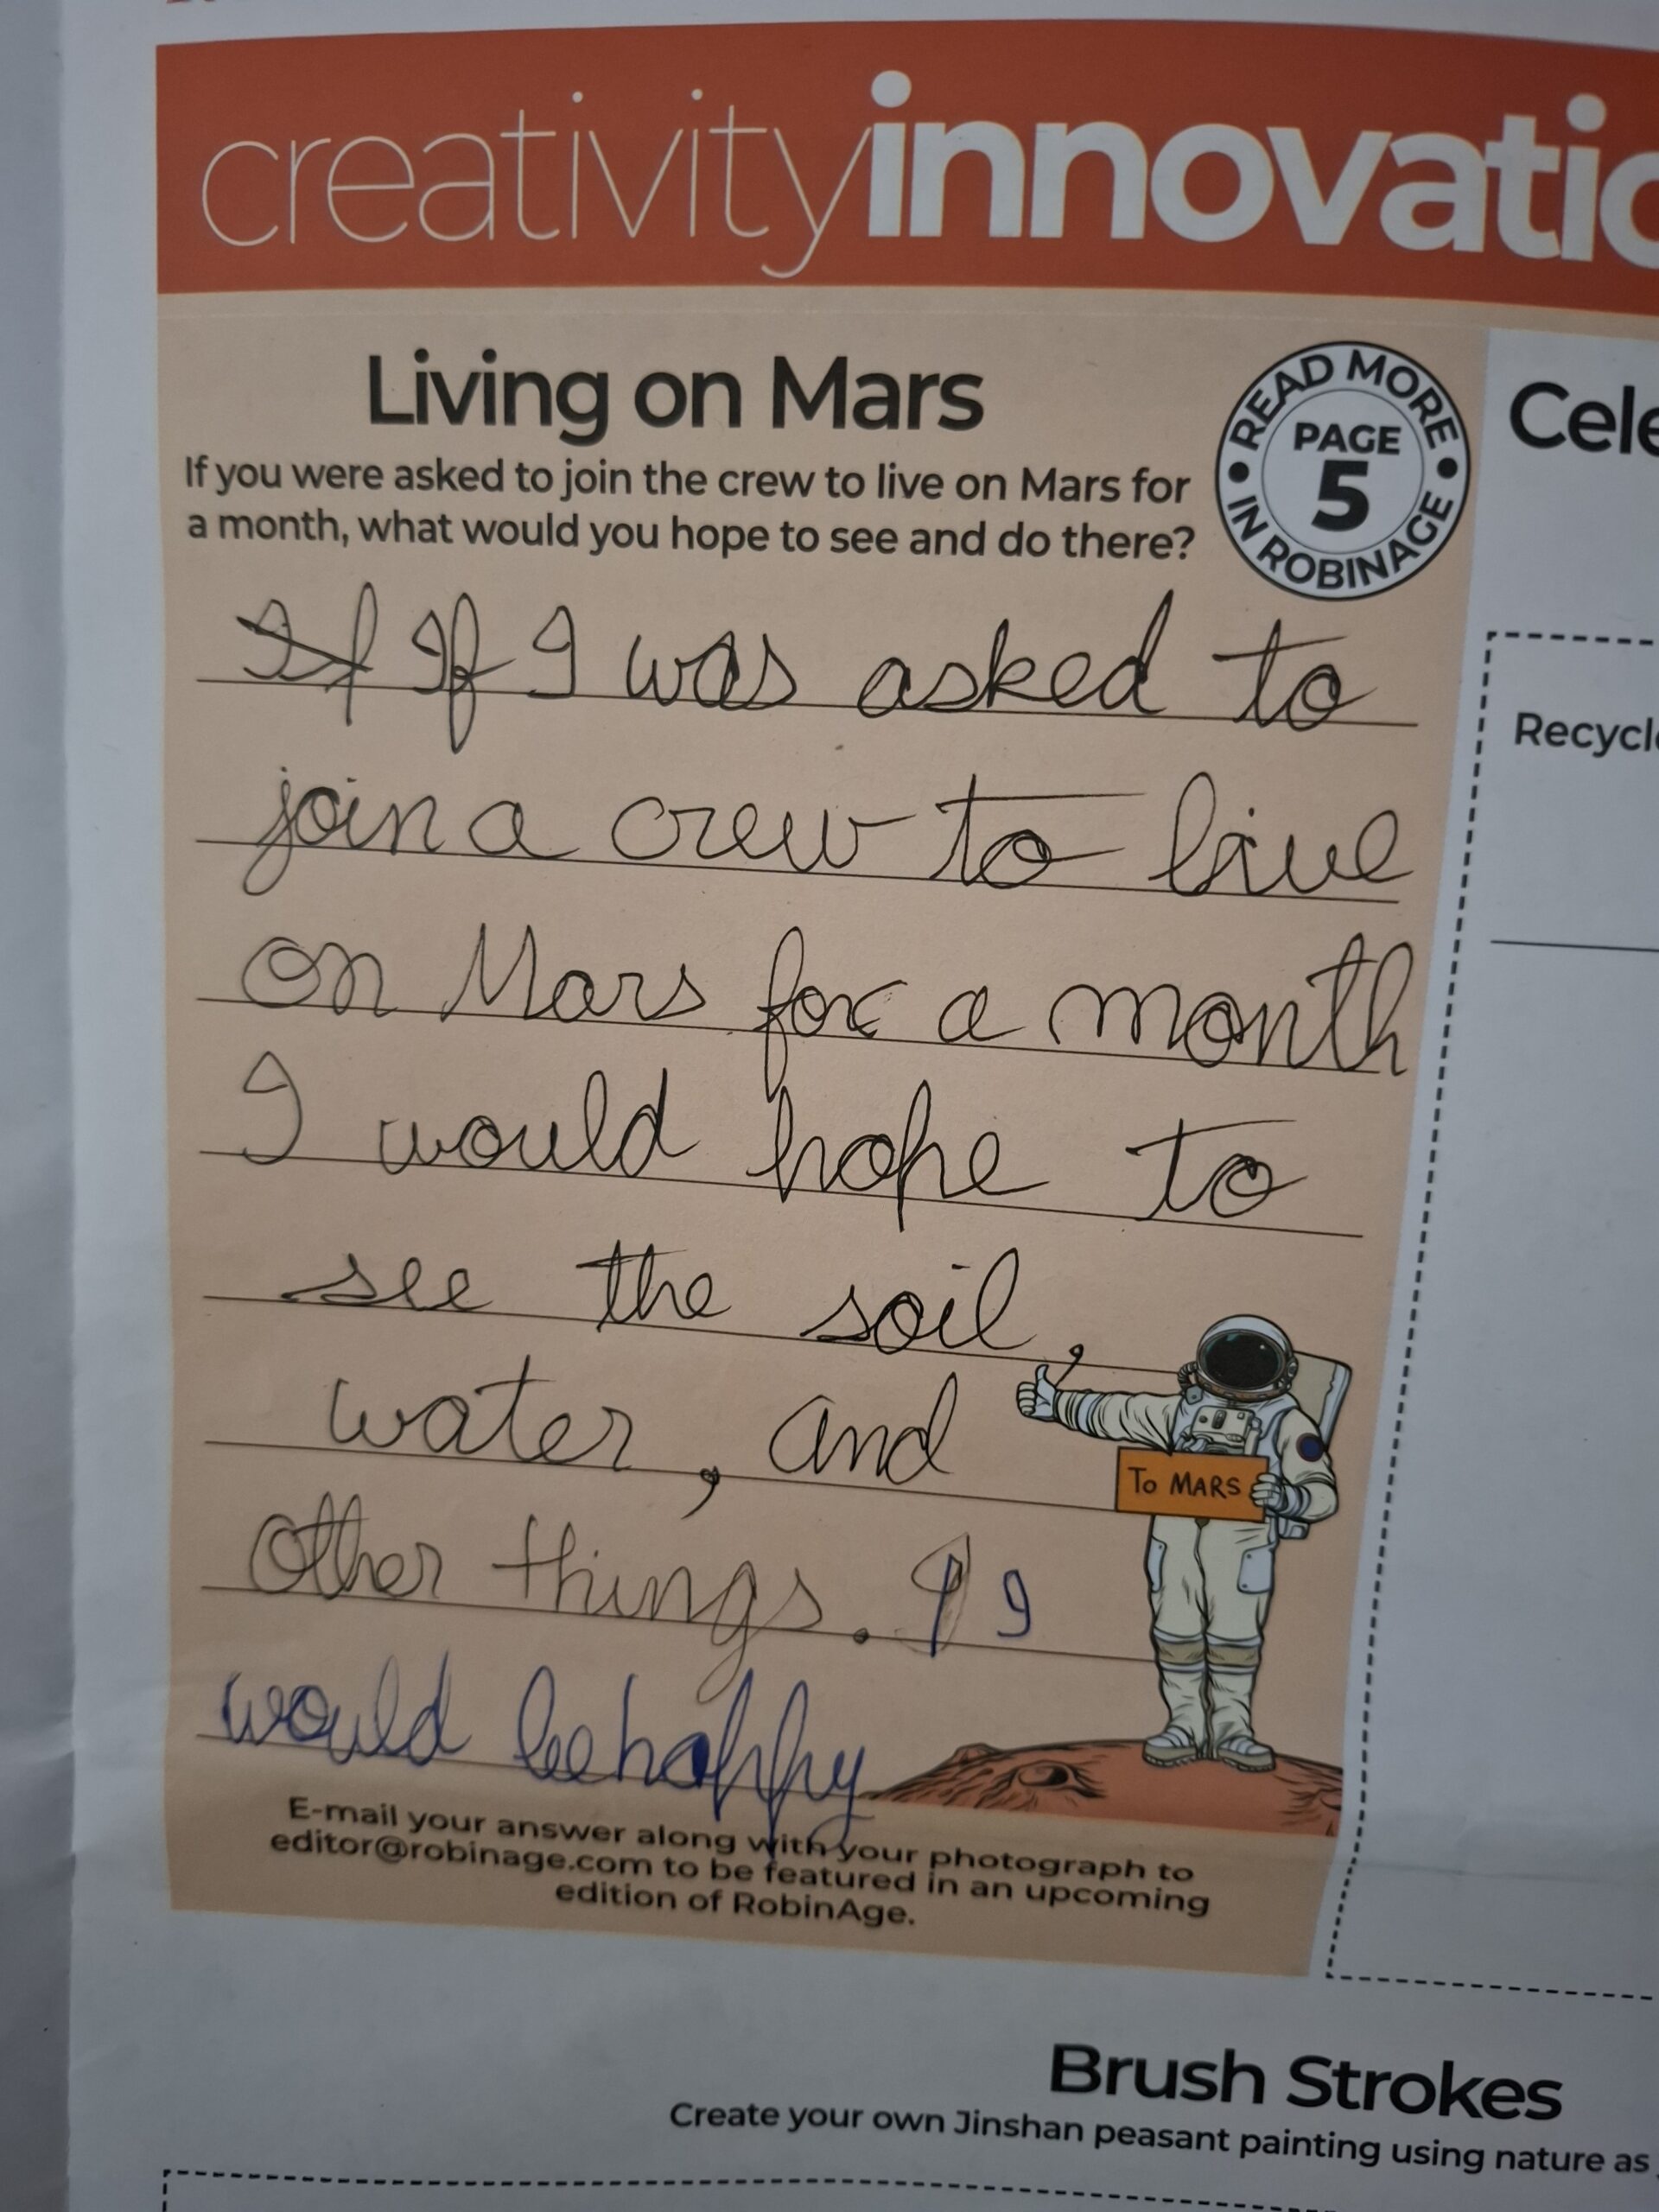 creativityinnovatio
Living on Mars
If you were asked to join the crew to live on Mars for
a month, what would you hope to see and do there?
READ MORE
PAGE
5
IN ROBINAGE
If If I was asked to
join a crew to live
on Mars for a month
I would hope to
see the soil,
water, and
other things. I I
would be happy
TO MARS
E-mail your answer along with your photograph to
editor@robinage.com to be featured in an upcoming
edition of RobinAge.
Cele
Recycl
Brush Strokes
Create your own Jinshan peasant painting using nature as